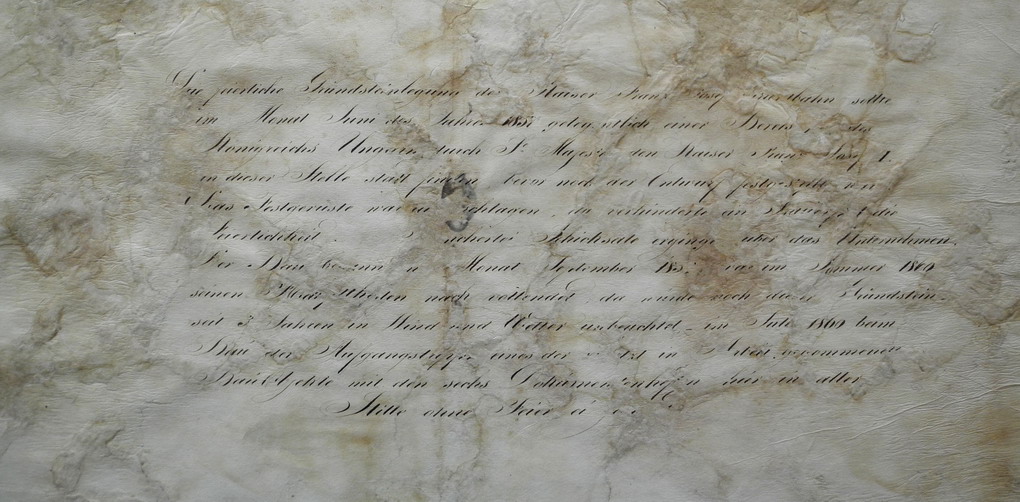 Die feierliche Grundsteinlegung der Kaiser Franz Josef Orientbahn sollte
im Monat Juni des Jahres 1857 gelegentlich einer Bereisung des
Königreichs Ungarn durch Sr Majestät den Kaiser Franz Josef I.
an dieser Stelle statt finden, bevor noch der Entwurf festgestellt war
Das Festgerüste war
geschlagen, da verhinderte ein Trauerfall die
Feierlichkeit. Schicksale ergingen über das Unternehmen.
Der Bau begann im Monat September war im Sommer 1860
seinen Hauptteilen nach vollendet, da wurde noch dieser Grundstein,
seit 3 Jahren in Wind und Wetter unbeachtet, im July 1860 beim
Bau der Aufgangstreppe eines der in Arbeit genommenen
Bauobjekte mit den sechs hier in aller
Stille ohne Feier